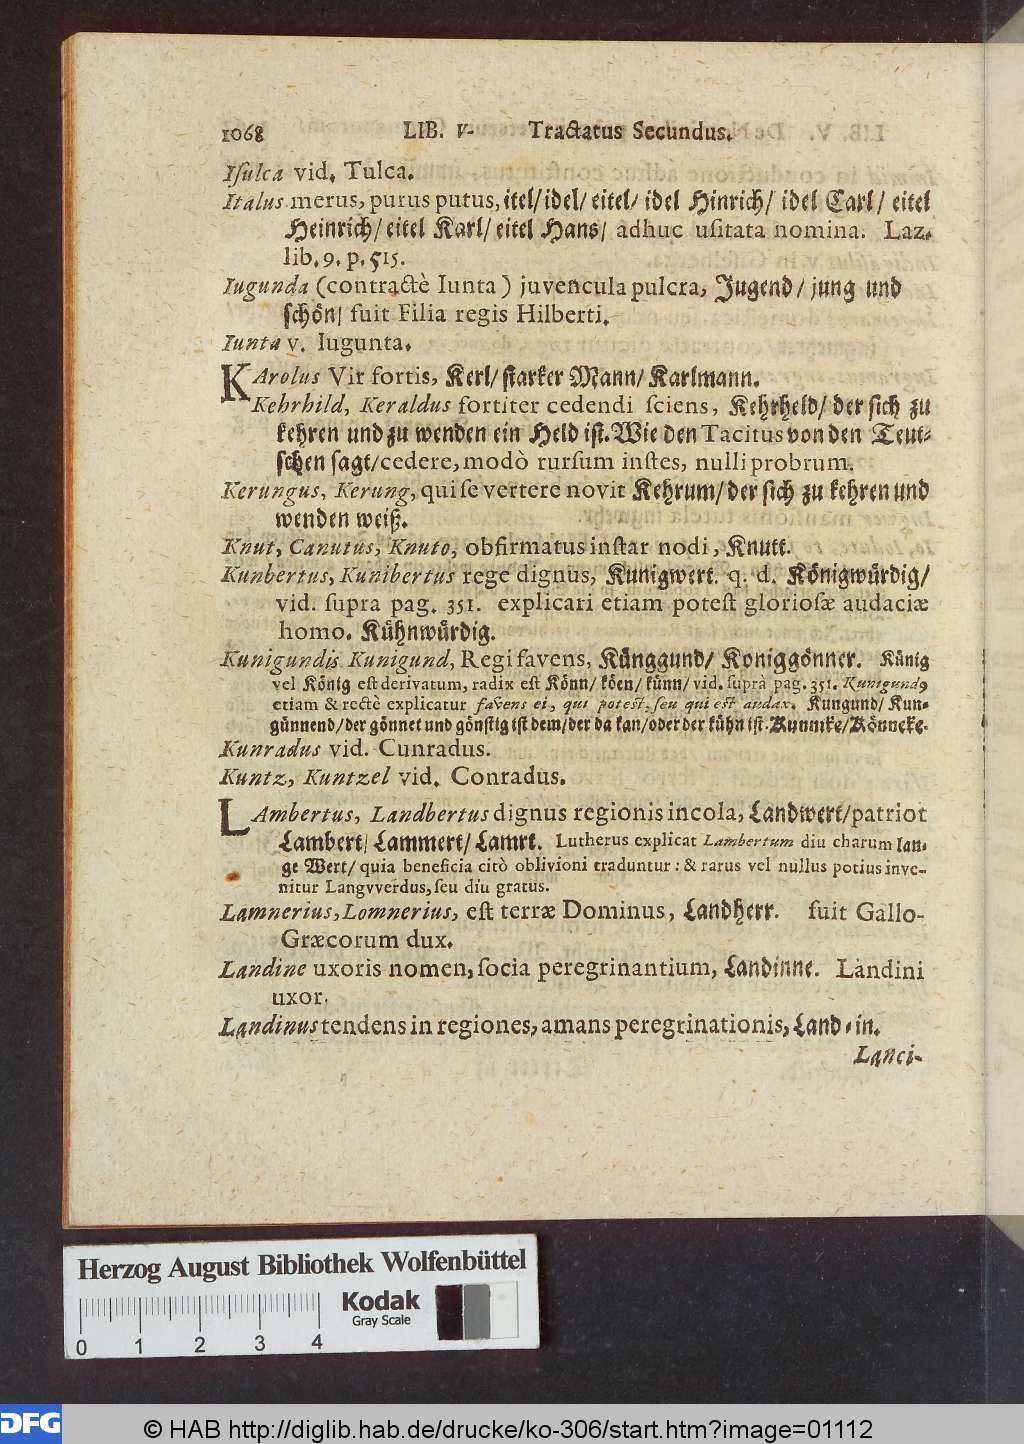 1068 LIB. V. Tractatus Secundus.
Iſulca vid. Tulca.
Italus merus, purus putus, itel/ idel/ eitel/ idel Hinrich/ idel Carl/ eitel
Heinrich/ eitel Karl/ eitel Hans/ adhuc uſitata nomina. Laz.
lib. 9. p. 515.
Iugunda (contractè Iunta) juvencula pulcra, Jugend/ jung und
ſchoͤn/ fuit Filia regis Hilberti.
Iunta v. Iugunta.
KArolus Vir fortis, Kerl/ ſtarker Mann/ Karlmann.
Kehrhild, Keraldus fortiter cedendi ſciens, Kehrheld/ der ſich zu
kehren und zu wenden ein Held iſt. Wie den Tacitus von den Teut-
ſchen ſagt/ cedere, modò rurſum inſtes, nulli probrum.
Kerungus, Kerung, qui ſe vertere novit Kehrum/ der ſich zu kehren und
wenden weiß.
Knut, Canutus, Knuto, obfirmatus inſtar nodi, Knutt.
Kunbertus, Kunibertus rege dignus, Kunigwert. q. d. Koͤnigwuͤrdig/
vid. ſupra pag. 351. explicari etiam poteſt glorioſæ audaciæ
homo. Kuͤhnwuͤrdig.
Kunigundis Kunigund, Regi favens, Kuͤnggund/ Koniggoͤnner. Kuͤnig
vel Koͤnig eſt derivatum, radix eſt Koͤnn/ koͤen/ kuͤnn/ vid. ſuprà pag. 351. Kunigundꝰ
etiam & rectè explicatur favens ei, qui poteſt, ſeu qui eſt audax. Kungund/ Kun-
guͤnnend/ der goͤnnet und goͤnſtig iſt dem/ der da kan/ oder der kuͤhn iſt. Kunnike/ Koͤnneke.
Kunradus vid. Cunradus.
Kuntz, Kuntzel vid. Conradus.
LAmbertus, Landbertus dignus regionis incola, Landwert/ patriot
Lambert/ Lammert/ Lamrt. Lutherus explicat Lambertum diu charum lan-
ge Wert/ quia beneficia citò oblivioni traduntur: & rarus vel nullus potius inve-
nitur Langvverdus, ſeu diu gratus.
Lamnerius, Lomnerius, eſt terræ Dominus, Landherr. fuit Gallo-
Græcorum dux.
Landine uxoris nomen, ſocia peregrinantium, Landinne. Làndini
uxor.
Landinus tendens in regiones, amans peregrinationis, Land-in.
Lanci-
Herzog August Bibliothek Wolfenbüttel
Kodak
Gray Scale
0 1 2 3 4
DFG
© HAB http://diglib.hab.de/drucke/ko-306/start.htm?image=01112